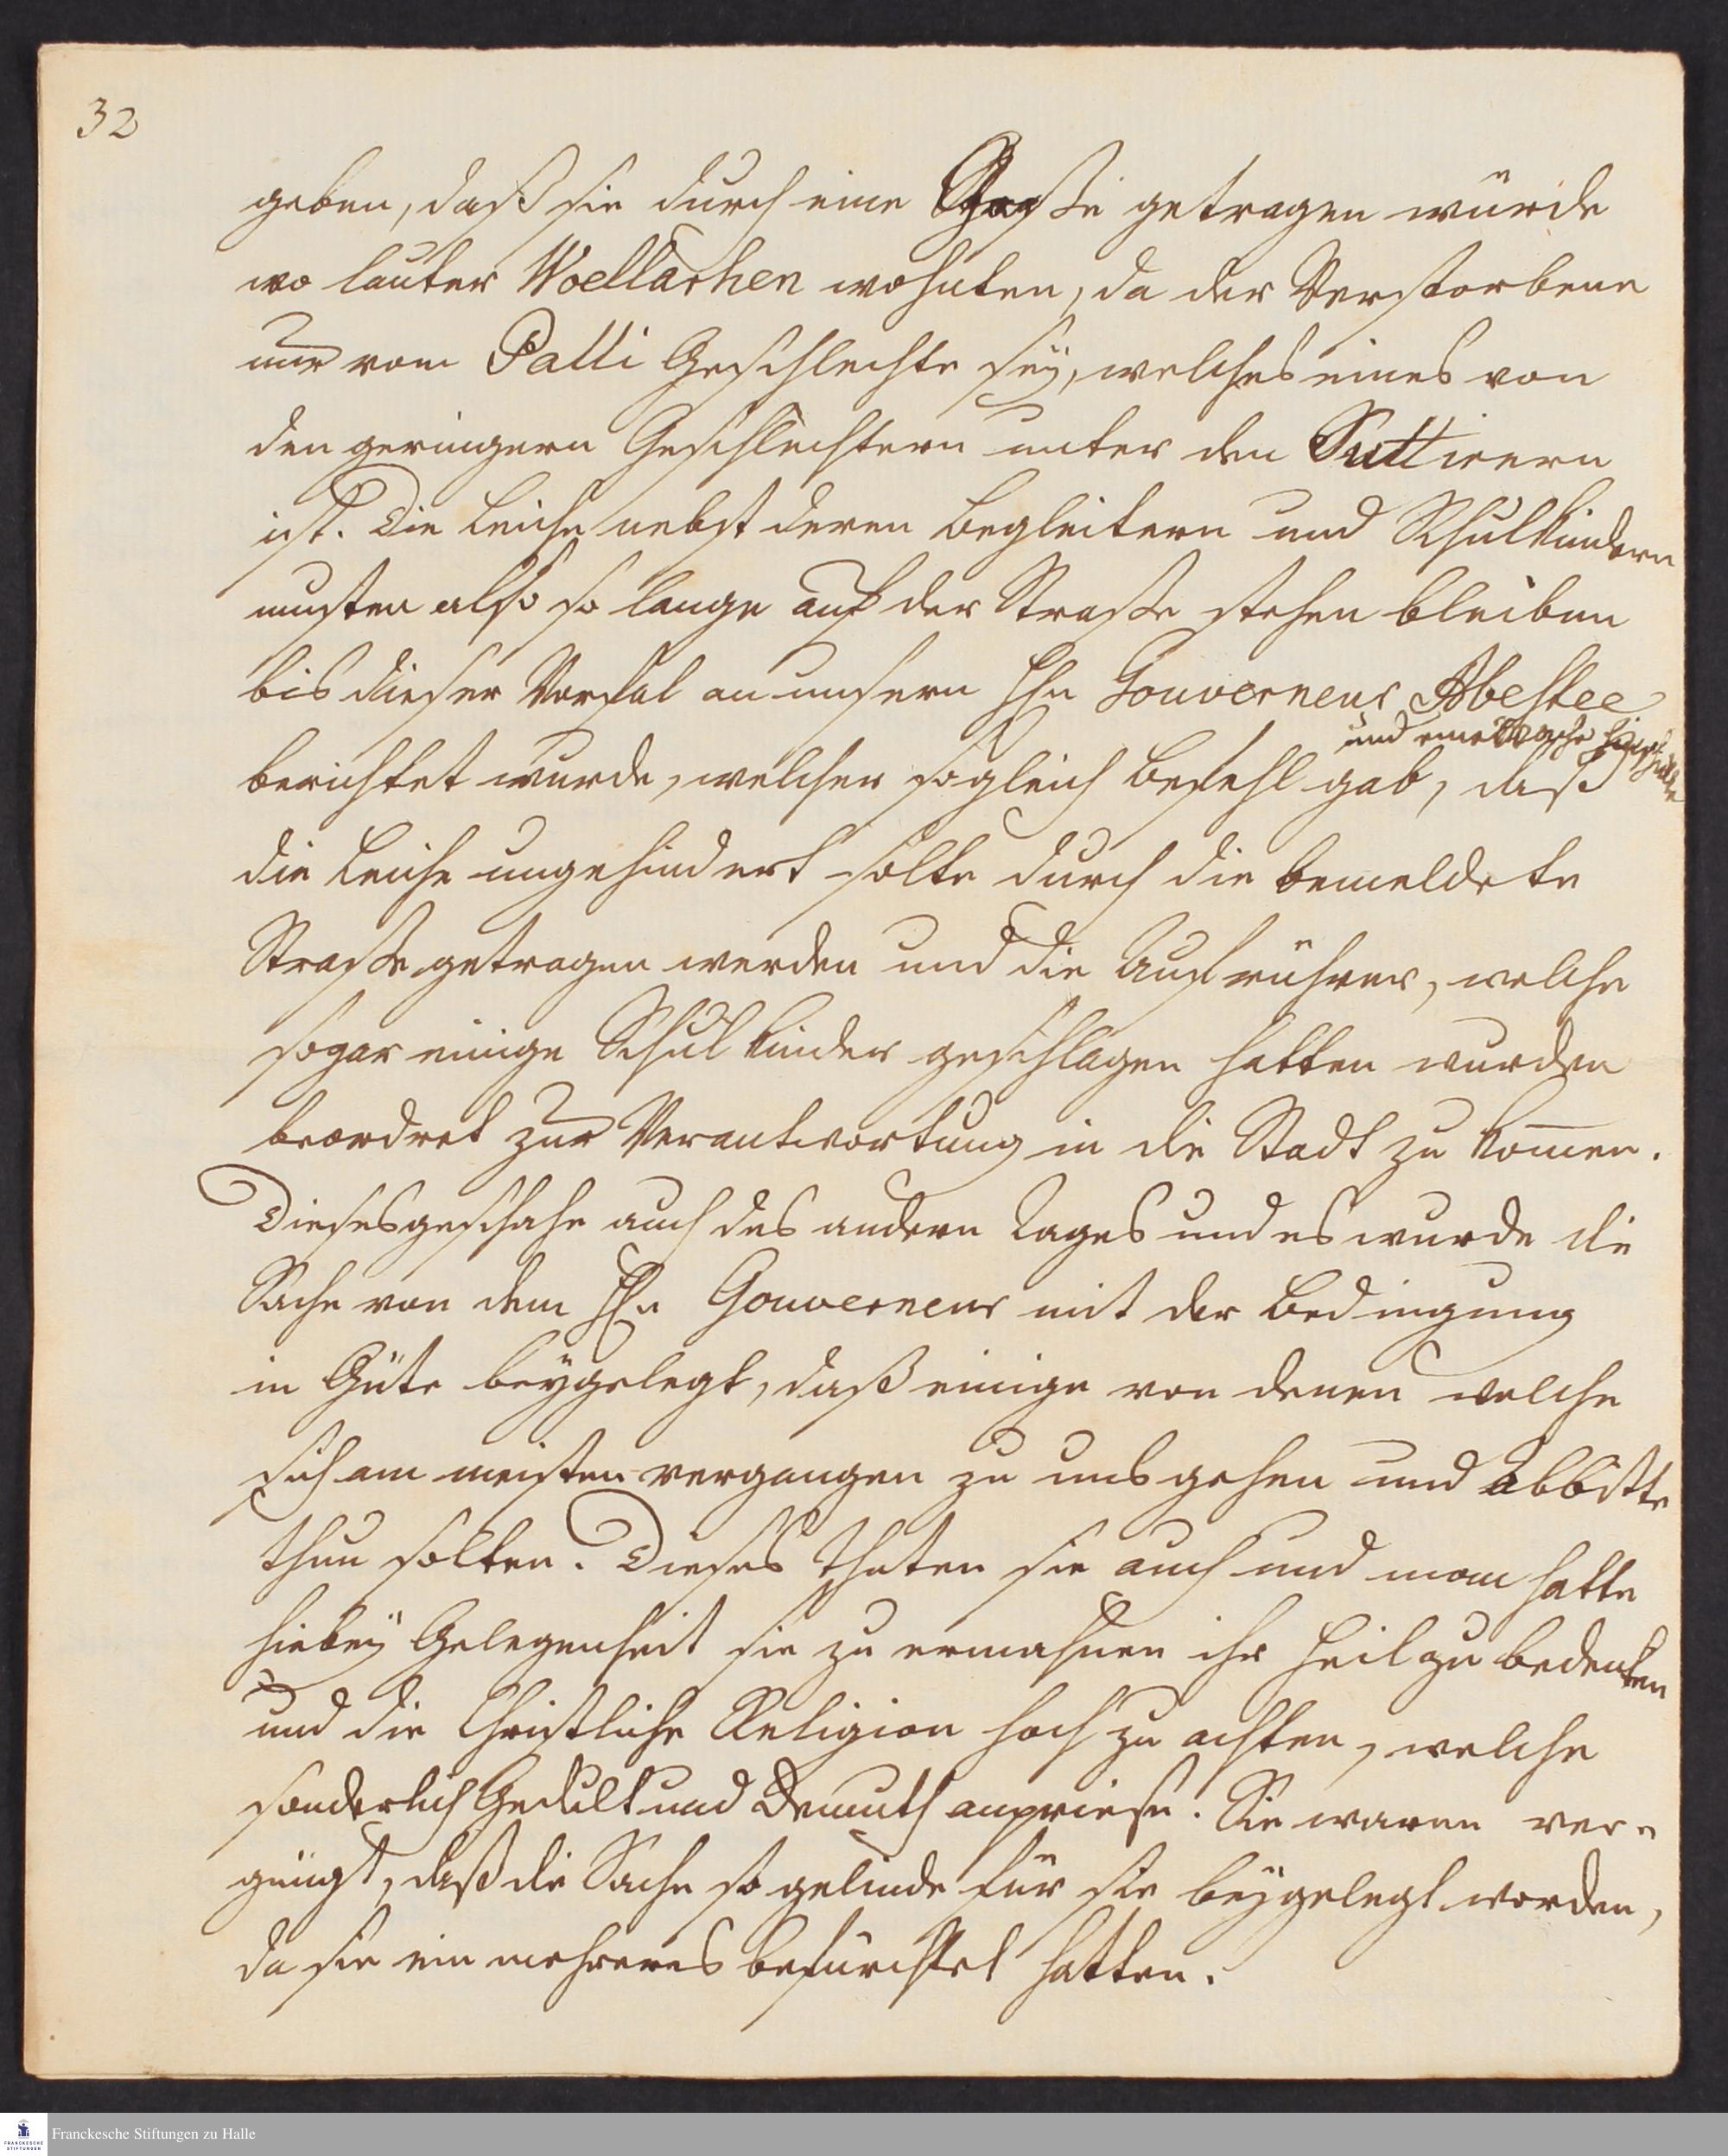 32
geben, daß sie durch eine Straße getragen würde
wo lauter Woellarhen wohnten, da der Verstorbene
nur vom Palli Geschlechte sey, welches eines von
den geringern Geschlechtern unter den Suttirern
ist. Die Leiche nebst deren Begleitern und Schulkindern
musten also so lange auf der Straße stehen bleiben
bis dieser Vorfal an unsern Hn Gouverneur Abestee
und eine Wache hinschickte
berichtet wurde, welcher sogleich Befehl gab, daß
die Leiche ungehindert solte durch die bemeldete
Straße getragen werden und die Aufrührer, welche
sogar einige Schulkinder geschlagen hatten wurden
beordret zur Verantwortung in die Stadt zu kom̄en.
Dieses geschahe auch des andern Tages und es wurde die
Sache von dem Hn Gouverneur mit der Bedingung
in Güte beygelegt, daß einige von denen welche
sich am meisten vergangen zu uns gehen und Abbitte
thun solten. Dieses thaten sie auch und man hatte
hiebey Gelegenheit sie zu ermahnen ihr Heil zu bedenken
und die Christliche Religion hoch zu achten, welche
sonderlich Gedult und Demuth anpriese. Sie waren ver-
gnügt, daß die Sache so gelinde für sie beygelegt worden,
da sie ein mehreres befürchtet hatten.
FRANCKESCHE STIFTUNGEN
Franckesche Stiftungen zu Halle